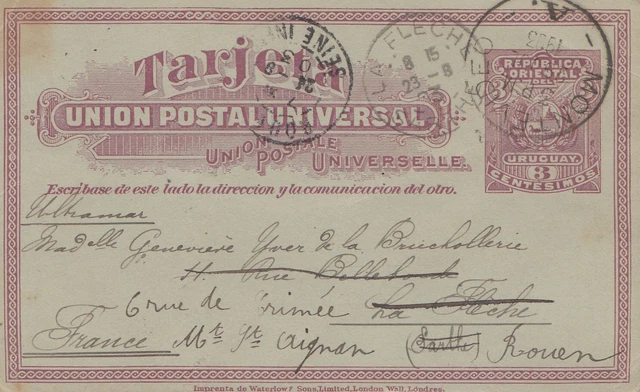 Tarjeta
UNION POSTAL UNIVERSAL
UNION POSTALE UNIVERSELLE
REPÚBLICA
ORIENTAL
DEL
URUGUAY
3
CENTÉSIMOS
LA FLECHE
8 15
23 - 8
SEINE INF
MONTEVIDEO
Escríbase de este lado la direccion y la comunicacion del otro.
Ultramar
Madelle Geneviève Yver de la Bruchollerie
11. Rue
6 rue de Crimée La Flèche
France Mt St Aignan (Sarthe) Rouen
Imprenta de Waterlow & Sons, Limited, London Wall, Londres.